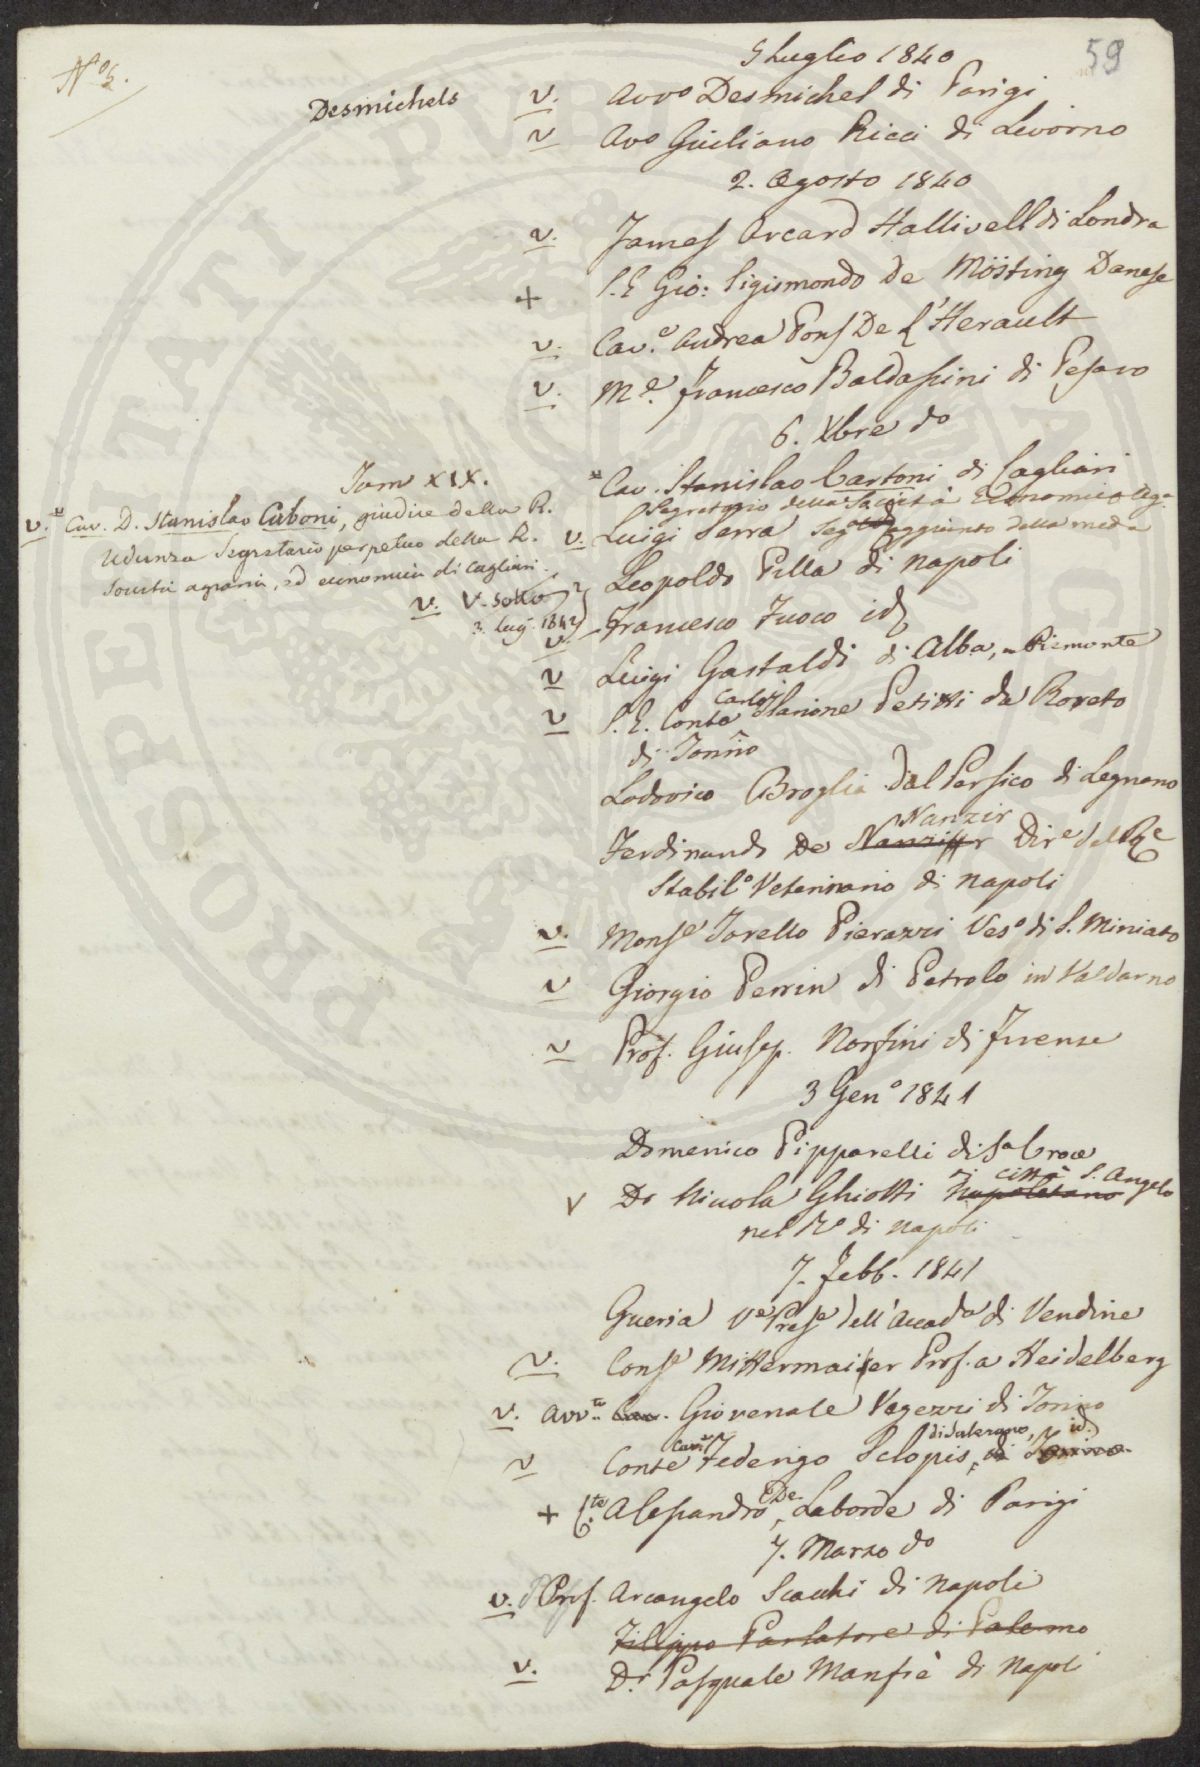 N.º 5.
59
5 luglio 1840
Desmichels
v. Avvº Desmichel di Parigi
v Avº Giuliano Ricci di Livorno
2. Agosto 1840
v. James Orcard Hallivell di Londra
+ S. E Gio: Sigismondo de Mösting Danese
v. Cav.e Andrea Pons De L'Herault
v. Me. Francesco Baldassini di Pesaro
6. Xbre do
Tom XIX.
Cav. Stanislao Cartoni di Cagliari
Segretario della Società Economico Aga
v. Cav. D. Stanislao Caboni, giudice della R.
Udienza Segretario perpetuo della R.
Società agraria, ed economica di Cagliari.
v. Luigi Serra Sego aggiunto della meda
Leopoldo Pilla di Napoli
v. V. sotto
3. lug. 1842
v Francesco Fuoco id
v Luigi Gastaldi di Alba, in Piemonte
v S. E. Conte Carlo Ilarione Petitti da Roreto
di Torino
Lodovico Broglia Dal Persico di Legnano
Nanzir
Ferdinando De Nanzir Dire del Re
Stabilº Veterinario di Napoli
v. Monse Torello Pierazzi Vesº di S. Miniato
v Giorgio Perrin di Petrolo in Valdarno
v Prof. Giusep. Norfini di Firenze
3 Genº 1841
Domenico Pipparelli di Sa Croce
di città S. Angelo
v Dr Nicola Ghiotti Napoletano
nel Rº di Napoli
7. Febb. 1841
Gueria Ve Prese dell'Accada di Vendine
v. Conse Mittermaier Prof. a Heidelberg
v. Avv.to Cav. Giovenale Vegezzi di Torino
Cave di Salerano, id.
v Conte Federigo Sclopis, di Torino
+ C.te Alessandro De Laborde di Parigi
7. Marzo do
v. Prof. Arcangelo Scacchi di Napoli
Filippo Parlatore di Palermo
v. Dr. Pasquale Manfrè di Napoli